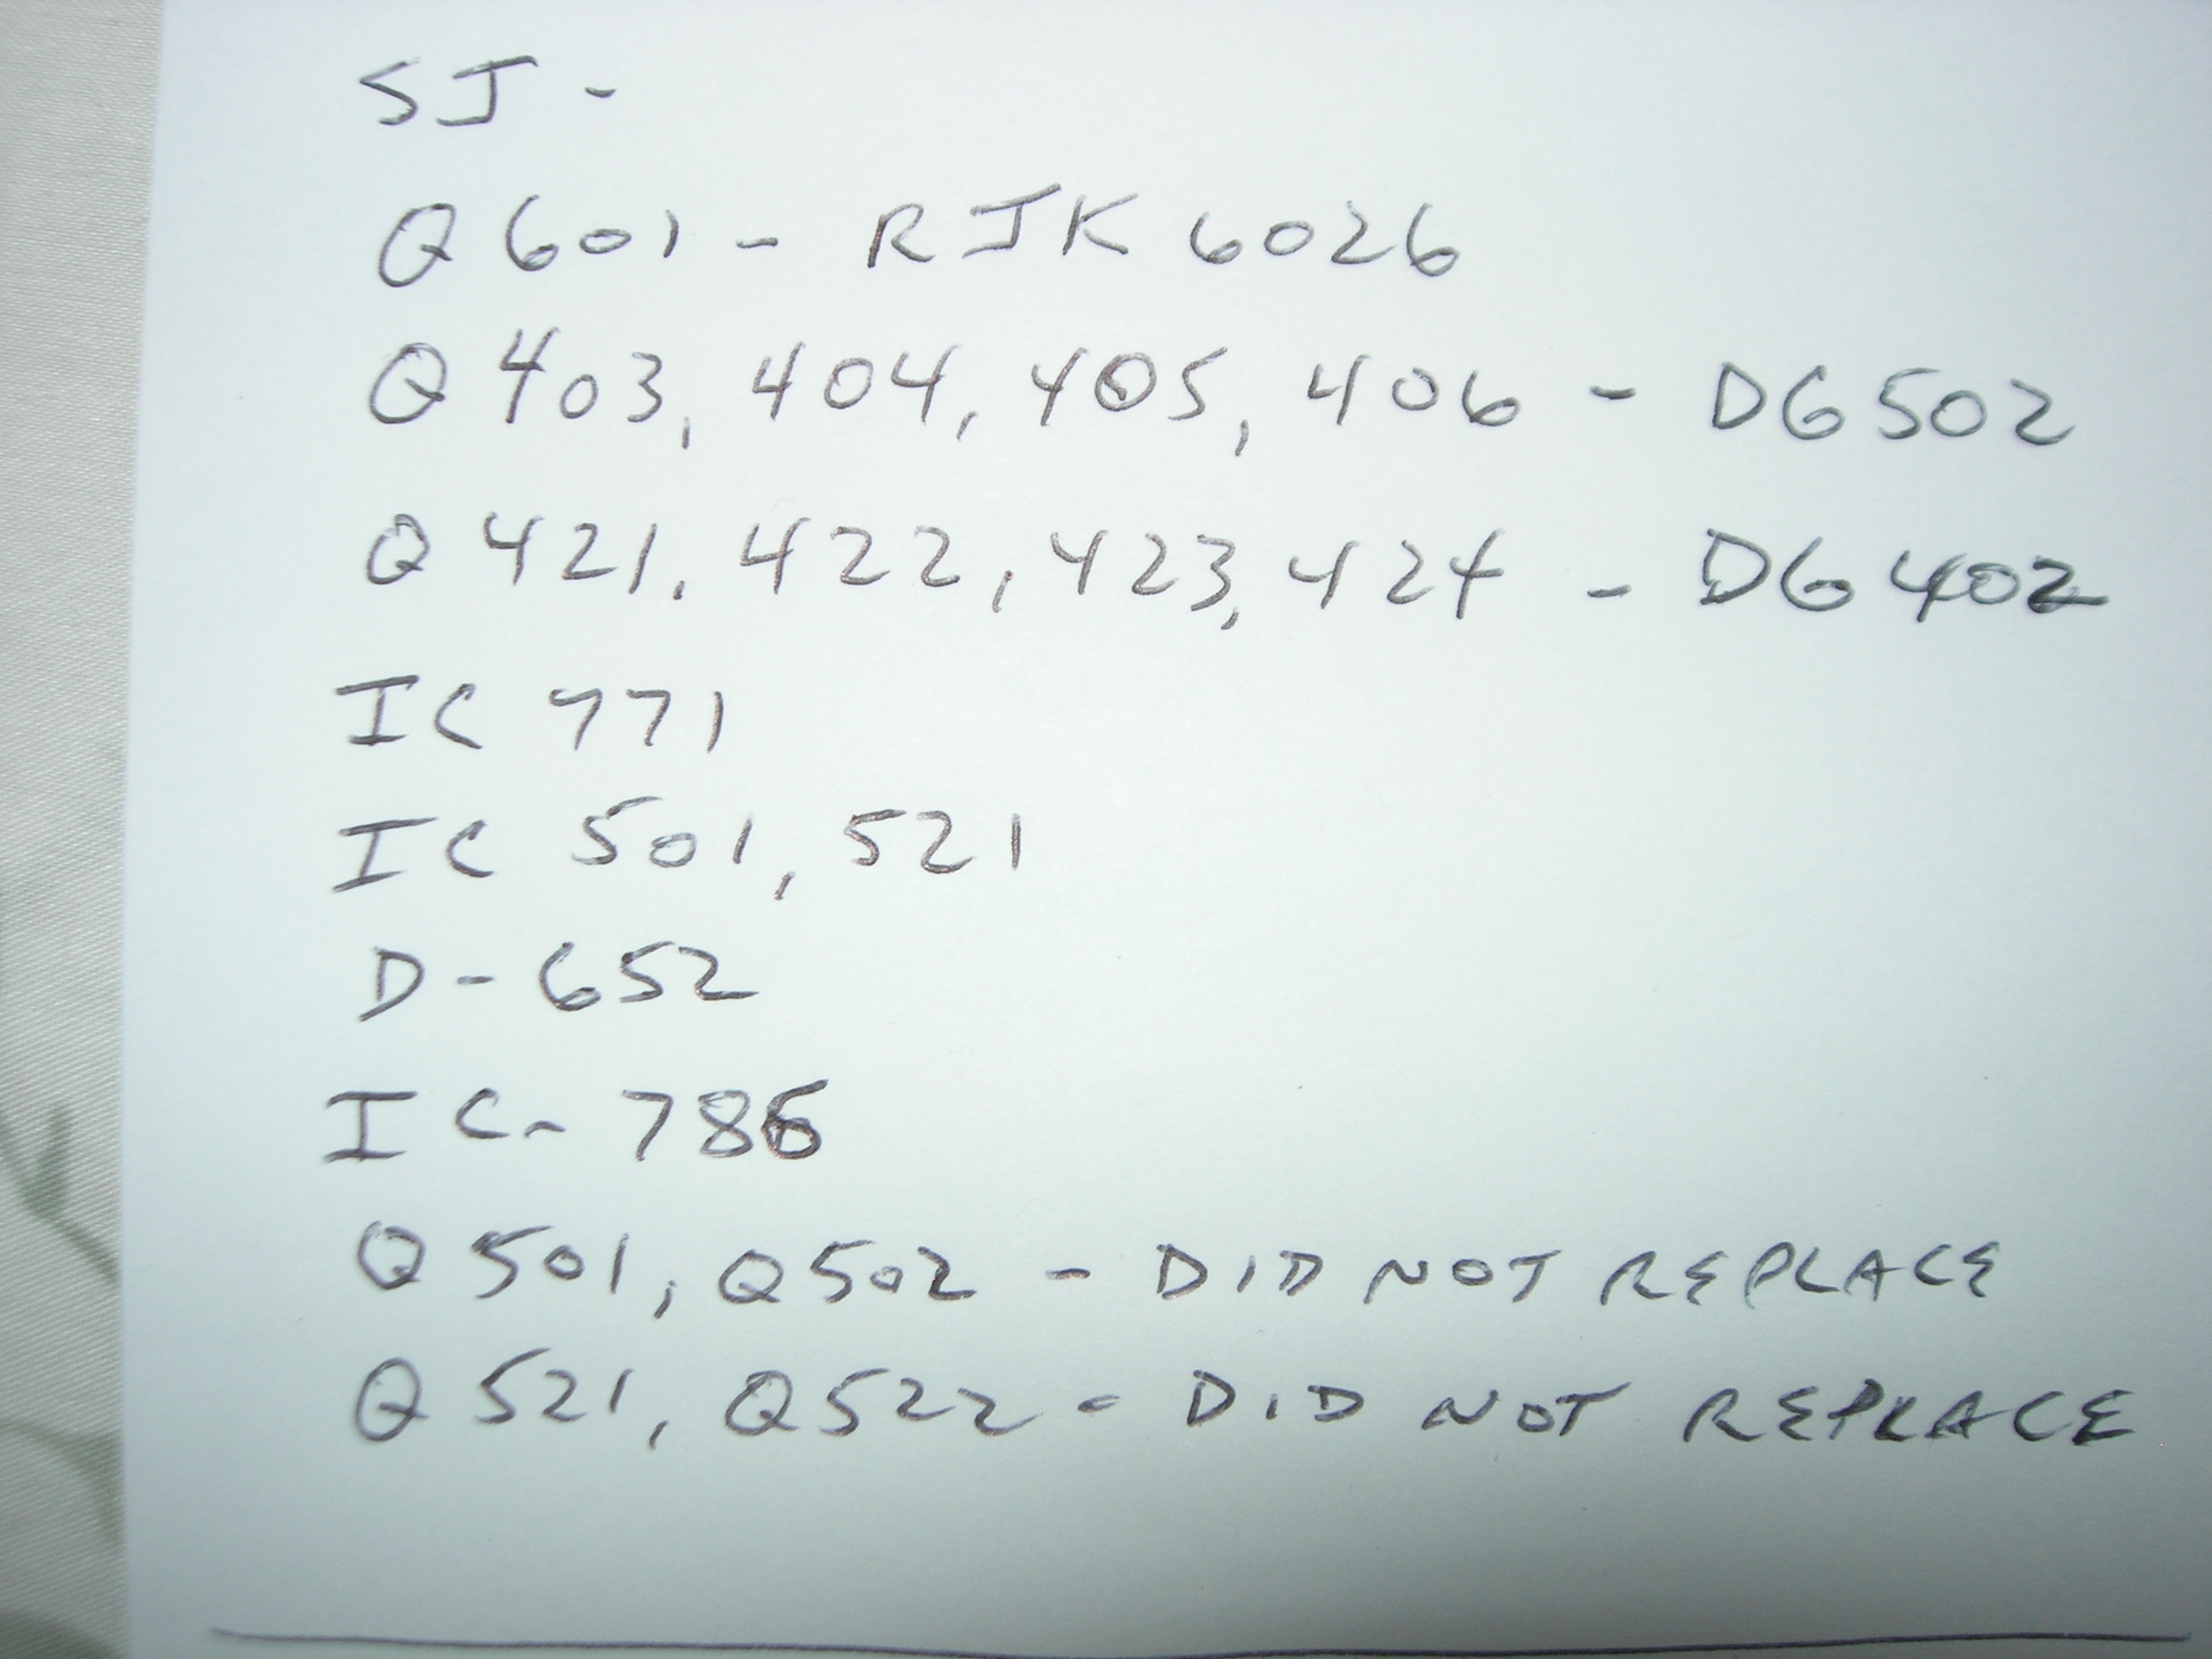 SJ -
Q601 - RJK6026
Q403, 404, 405, 406 - DG502
Q421, 422, 423, 424 - DG402
IC 771
IC 501, 521
D-652
IC-786
Q501, Q502 - DID NOT REPLACE
Q521, Q522 - DID NOT REPLACE